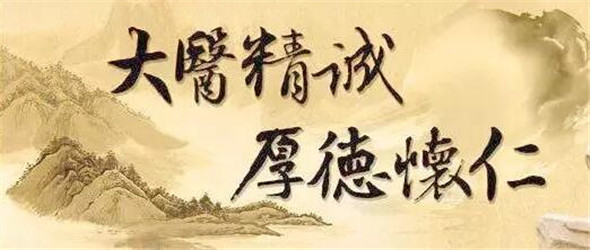 大醫精诚
厚德懷仁